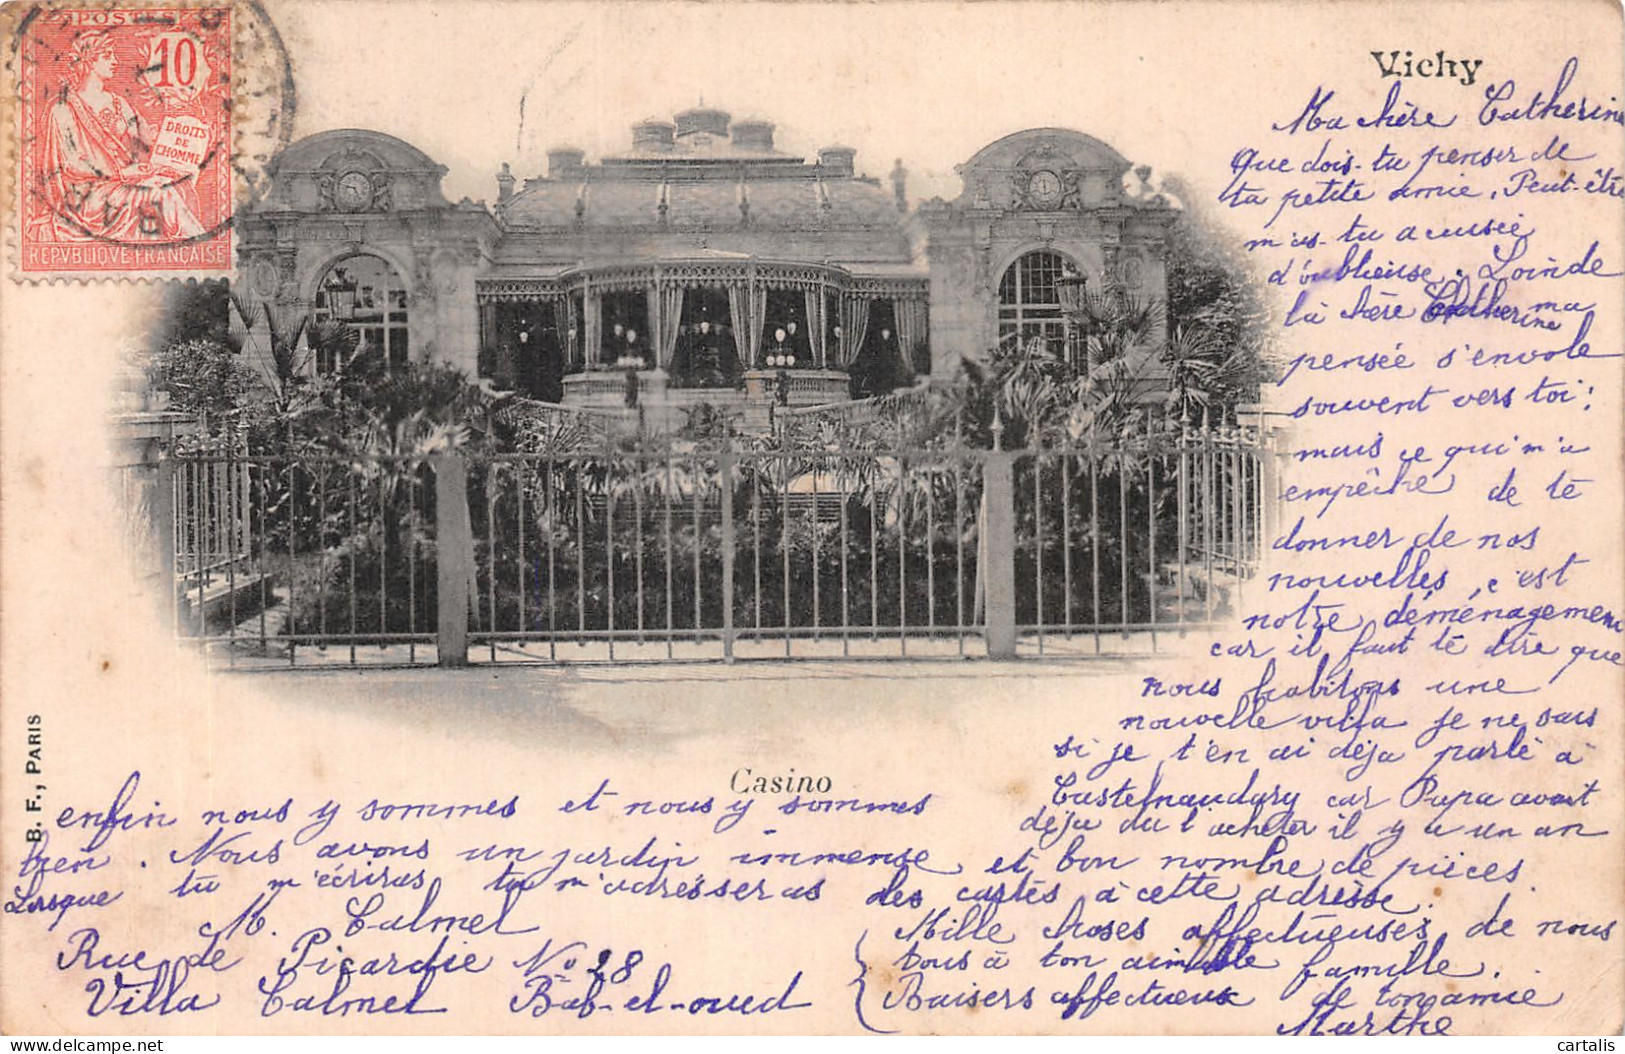 POSTES
10
DROITS
DE
L'HOMME
REPVBLIQVE FRANÇAISE
Vichy
Ma chère Catherine
Que dois-tu penser de
ta petite amie. Peut-être
m'as-tu accusée
d'oublieuse. Loin de
là chère Catherine ma
pensée s'envole
souvent vers toi;
mais ce qui m'a
empêche de te
donner de nos
nouvelles, c'est
notre déménagement
car il faut te dire que
nous habitons une
nouvelle villa je ne sais
si je t'en ai déja parlé à
Castelnaudary car Papa avait
déja du l'acheter il y a un an
Casino
B. F., PARIS
enfin nous y sommes et nous y sommes
bien. Nous avons un jardin immense et bon nombre de pièces.
Lorsque tu m'écriras tu m'adresseras des cartes à cette adresse.
M. Calmel
Rue de Picardie No 28
Villa Calmel Bab-el-oued
Mille choses affectueuses de nous
tous à ton aimable famille.
Baisers affectueux de ton amie
Marthe
cartalis
www.delcampe.net